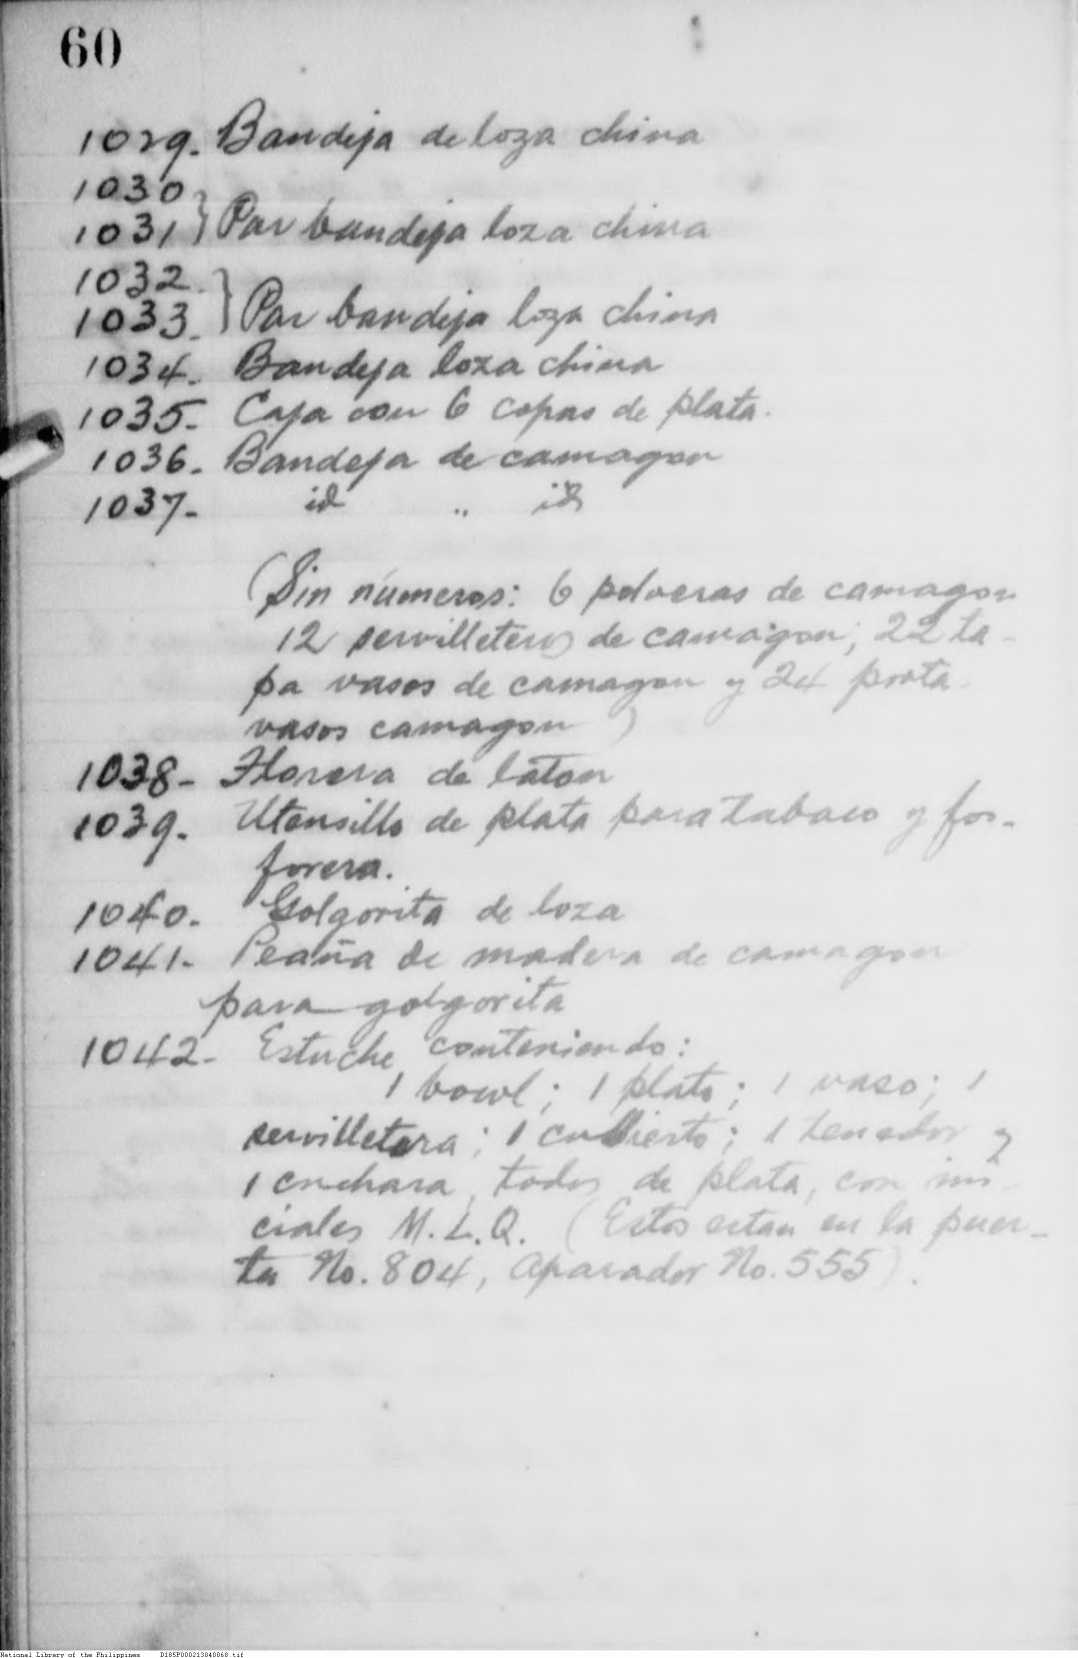 60
1029. Bandeja de loza china
1030
1031 } Par bandeja loza china
1032.
1033. } Par bandeja loza china
1034. Bandeja loza china
1035- Caja con 6 copas de plata.
1036. Bandeja de camagon
1037- id " id
(Sin números: 6 polveras de camagon
12 servilleteros de camagon; 22 ta-
pa vasos de camagon y 24 porta-
vasos camagon)
1038- Florera de laton
1039. Utensillo de plata para tabaco y fos-
forera.
1040. Golgorita de loza
1041- Peaña de madera de camagon
para golgorita
1042- Estuche conteniendo:
1 bowl; 1 plato; 1 vaso; 1
servilletera; 1 cubierto; 1 tenedor y
1 cuchara, todos de plata, con ini-
ciales M.L.Q. (Estos estan en la puer-
ta No. 804, Aparador No. 555).
National Library of the Philippines D185P000213040060.tif